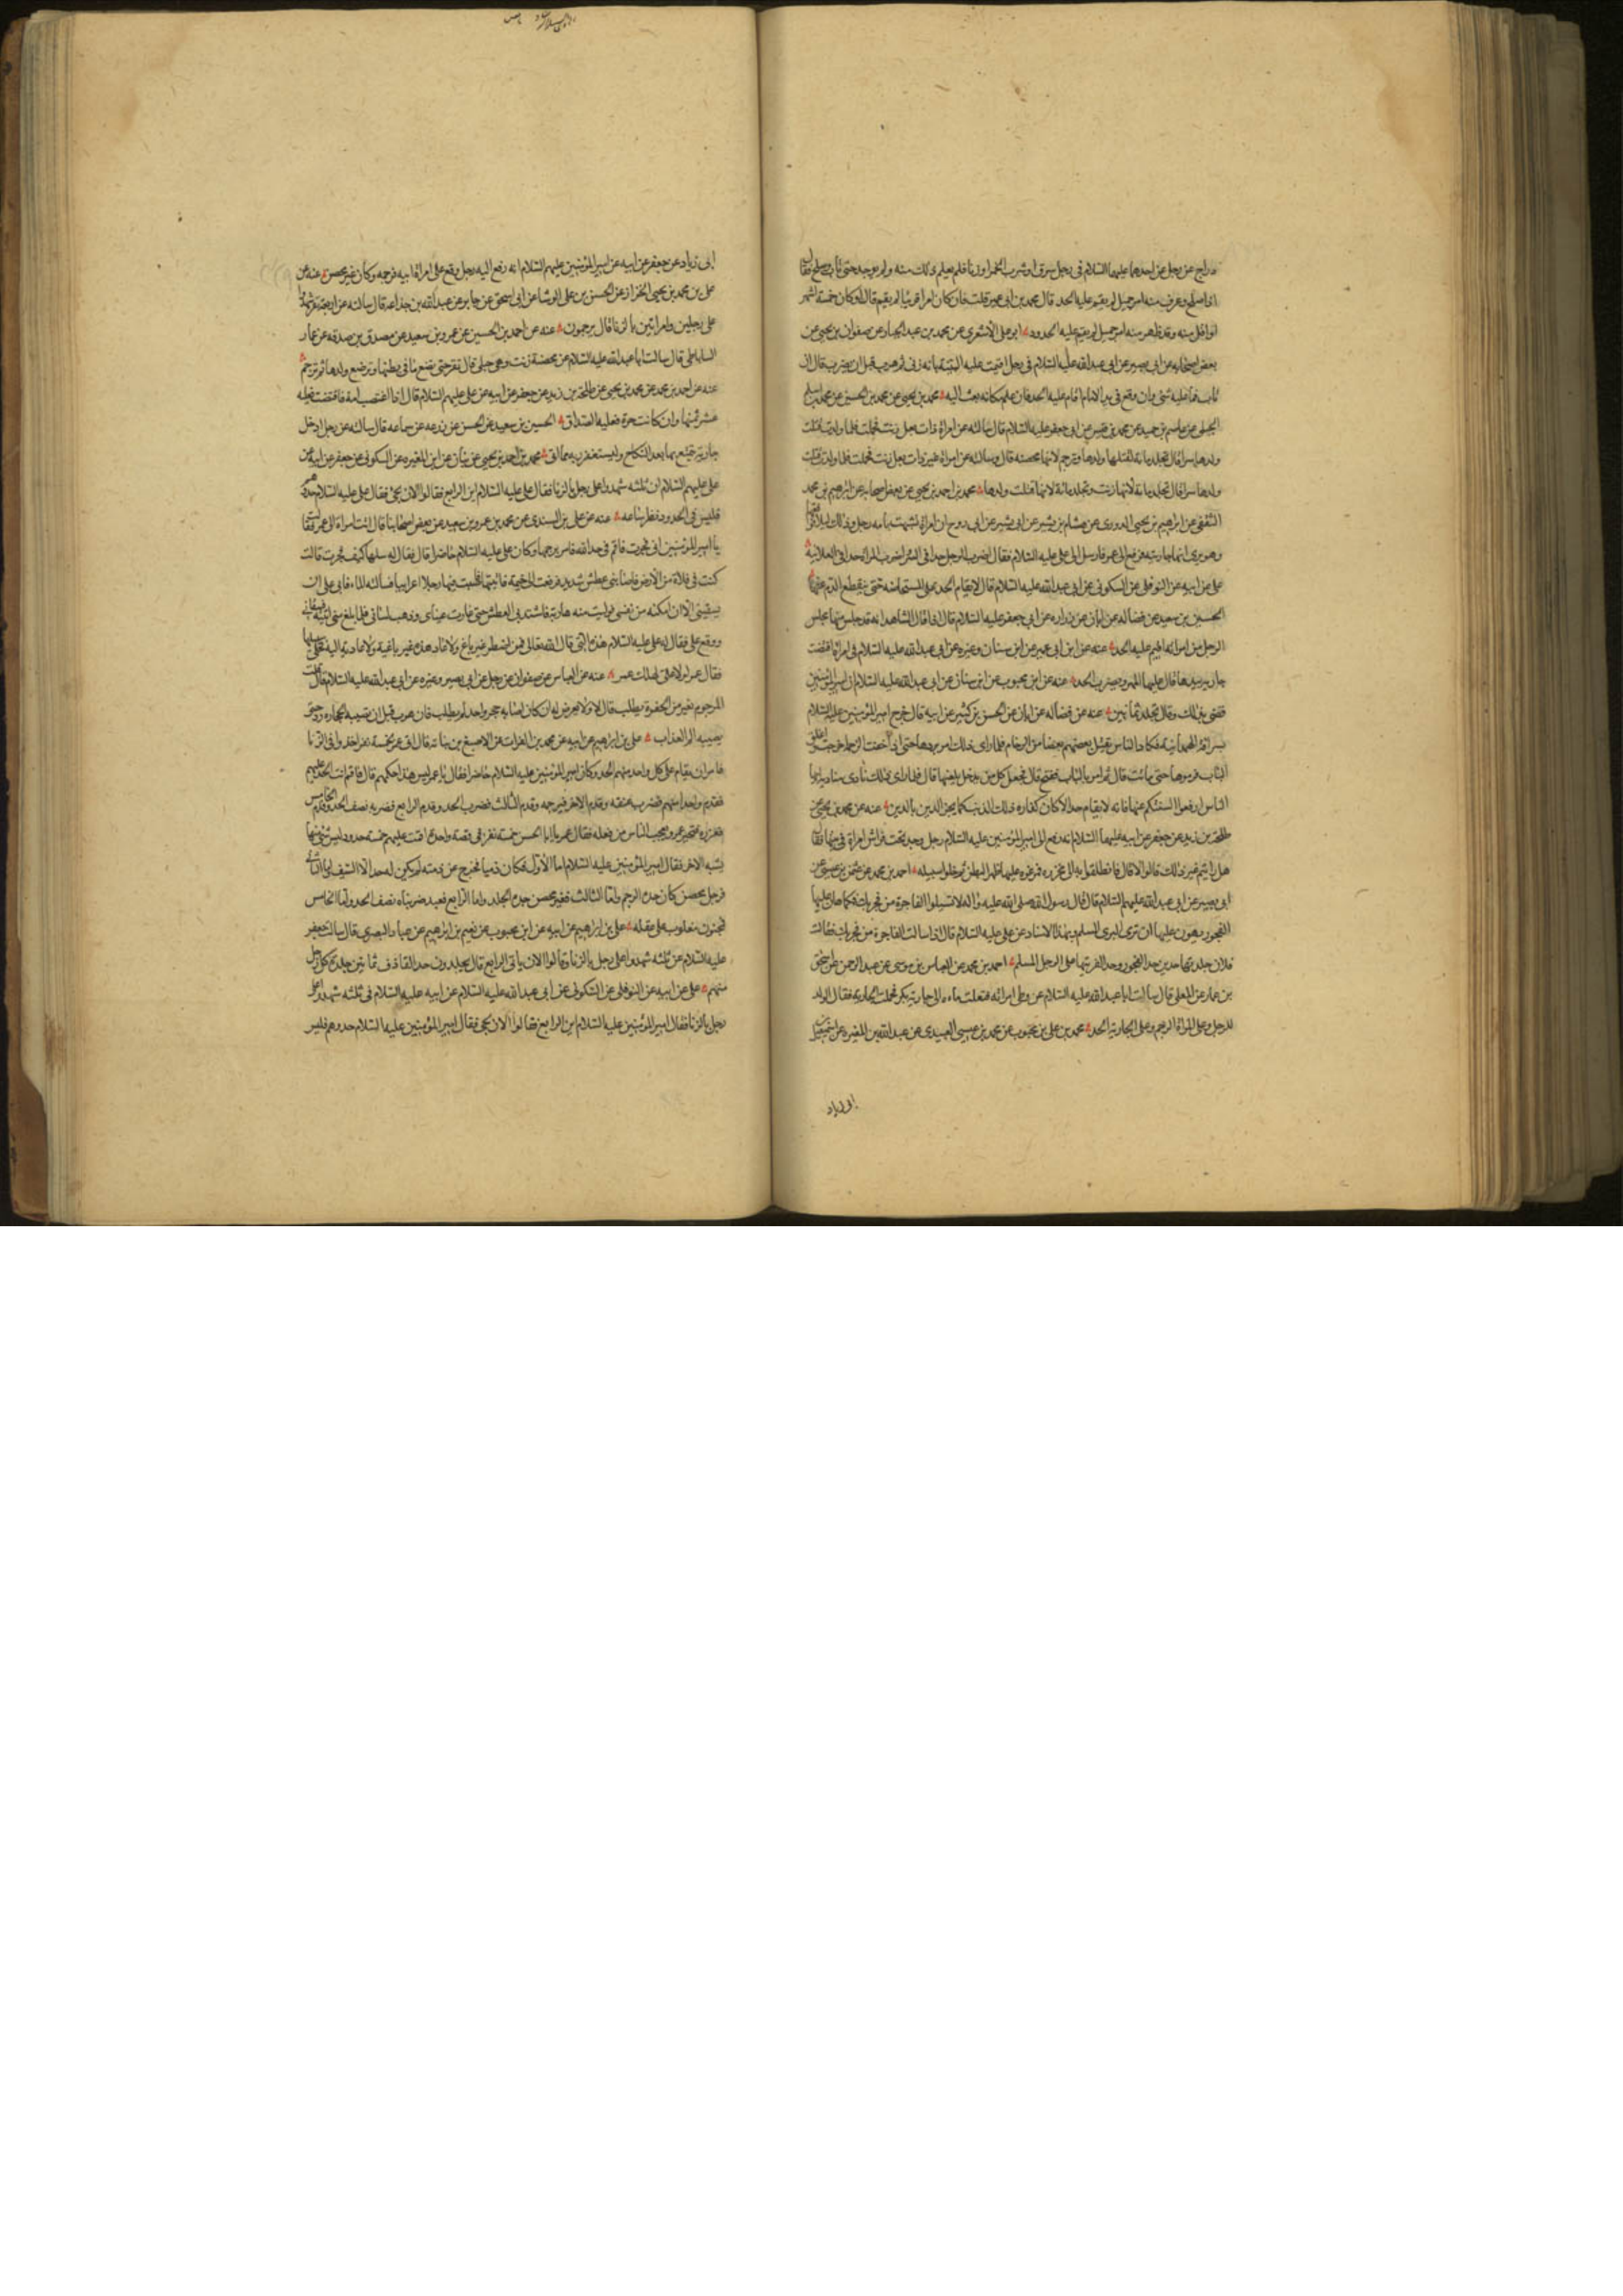 دراج عن رجل عن احدهما عليهما السلام فى رجل سرق او شرب الخمر او زنا فلم يعلم ذلك منه ولم يوخذ حتى تاب وصلح فقال
اذا صلح وعرف منه امر جميل لم يقم عليه الحد قال محمد بن ابى عمير قلت فان كان امرا قريبا لم يقم قال لو كان خمسة اشهر
او اقل منه وقد ظهر منه امر جميل لم يقم عليه الحدود ابو على الاشعرى عن محمد بن عبد الجبار عن صفوان بن يحيى عن
بعض اصحابه عن ابى بصير عن ابى عبد الله عليه السلام فى رجل اقيمت عليه البينة بانه زنى ثم هرب قبل ان يضرب قال ان
تاب فما عليه شئ وان وقع فى يد الامام اقام عليه الحد فان علم مكانه بعث اليه محمد بن يحيى عن محمد بن الحسين عن محمد بن اسلم
الجبلى عن عاصم بن حميد عن محمد بن قيس عن ابى جعفر عليه السلام قال سالته عن امراة ذات بعل زنت فحملت فلما ولدت قتلت
ولدها سرا قال تجلد مائة لقتلها ولدها وترجم لانها محصنة قال وسالته عن امراة غير ذات بعل زنت فحملت فلما ولدت قتلت
ولدها سرا قال تجلد مائة لانها زنت وتجلد مائة لانها قتلت ولدها محمد بن احمد بن يحيى عن بعض اصحابه عن ابراهيم بن محمد
الثقفى عن ابراهيم بن يحيى الدورى عن هشام بن بشير عن ابى بشير عن ابى روح ان امراة تشبهت بامة رجل وذلك ليلا فواقعها
وهو يرى انها جاريته فرفع الى عمر فارسل الى على عليه السلام فقال اضرب الرجل حدا فى السر واضرب المراة حدا فى العلانية
على عن ابيه عن النوفلى عن السكونى عن ابى عبد الله عليه السلام قال لا يقام الحد على المستحاضة حتى ينقطع الدم عنها
الحسين بن سعيد عن فضالة عن ابان عن زرارة عن ابى جعفر عليه السلام قال اذا قال الشاهد انه قد جلس منها مجلس
الرجل من امراته اقيم عليه الحد عنه عن ابن ابى عمير عن ابن سنان وغيره عن ابى عبد الله عليه السلام فى امراة اقتضت
جارية بيدها قال عليها المهر وتضرب الحد عنه عن ابن محبوب عن ابن سنان عن ابى عبد الله عليه السلام ان امير المؤمنين
قضى بذلك وقال تجلد ثمانين عنه عن فضالة عن ابان عن الحسن بن كثير عن ابيه قال خرج امير المؤمنين عليه السلام
بسراقة الهمدانية فكاد الناس يقتل بعضهم بعضا من الزحام فلما راى ذلك امر بردها حتى اذا خفت الزحمة اخرجت واغلق
الباب فرموها حتى ماتت قال ثم امر بالباب ففتح قال فجعل كل من يدخل يلعنها قال فلما راى ذلك نادى مناديه ايها
الناس ارفعوا السنتكم عنها فانه لا يقام حد الا كان كفارة ذلك الذنب كما يجزى الدين بالدين عنه عن محمد بن يحيى عن
طلحة بن زيد عن جعفر عن ابيه عليهما السلام انه رفع الى امير المؤمنين عليه السلام رجل وجد تحت فراش امراة فى بيتها فقال
هل رايتم غير ذلك قالوا لا قال فانطلقوا به الى مخروة فمرغوه عليها ظهرا لبطن ثم خلوا سبيله احمد بن محمد عن عثمن بن عيسى عن
ابى بصير عن ابى عبد الله عليهم السلام قال قال رسول الله صلى الله عليه واله لا تسئلوا الفاجرة من فجر بك فكما هان عليها
الفجور يهون عليها ان ترمى البرى المسلم وبهذا الاسناد عن على عليه السلام قال اذا سالت الفاجرة من فجر بك فقالت
فلان جلدتها حدين حد الفجور وحد الفريتها على الرجل المسلم احمد بن محمد عن العباس بن موسى عن عبد الرحمن عن اسحق
بن عمار عن المعلى قال سالت ابا عبد الله عليه السلام عن وطى امراته فنقلت ماءه الى جارية بكر فحملت الجارية فقال الولد
للرجل وعلى المراة الرجم وعلى الجارية الحد محمد بن على بن محبوب عن محمد بن عيسى العبيدى عن عبد الله بن المغيرة عن اسمعيل
ابى زياد
ابى زياد عن جعفر عن ابيه عن امير المؤمنين عليهم السلام انه رفع اليه رجل وقع على امراة ابيه فرجمه وكان غير محصن عنه عن
على بن محمد بن يحيى الخزاز عن الحسن بن على الوشا عن ابى اسحق عن جابر عن عبد الله بن جذاعه قال سالته عن اربعة نفر شهدوا
على رجلين وامراتين بالزنا قال يرجمون عنه عن احمد بن الحسين عن عمرو بن سعيد عن مصدق بن صدقه عن عمار
الساباطى قال سالت ابا عبد الله عليه السلام عن محصنة زنت وهى حبلى قال تقر حتى تضع ما فى بطنها وترضع ولدها ثم ترجم
عنه عن احمد بن محمد عن محمد بن يحيى عن طلحة بن زيد عن جعفر عن ابيه عن على عليهم السلام قال اذا اغتصب امة فاقتضت فعليه
عشر ثمنها وان كانت حرة فعليه الصداق الحسين بن سعيد عن الحسن عن زرعه عن سماعه قال سالته عن رجل ادخل
جارية يتمتع بها بعد النكاح وليستغفر ربه مما اتى محمد بن احمد بن يحيى عن بنان عن ابن المغيره عن السكونى عن جعفر عن ابيه عن
على عليهم السلام ان ثلثه شهدوا على رجل بالزنا فقال على عليه السلام اين الرابع فقالوا الان يجئ فقال على عليه السلام حدوهم
فليس فى الحدود نظر ساعه عنه عن على بن السندى عن محمد بن عمرو بن سعيد عن بعض اصحابنا قال اتت امراة الى عمر فقالت
يا امير المؤمنين انى فجرت فاقم فى حد الله فامر برجمها وكان على عليه السلام حاضرا قال فقال له سلها كيف فجرت قالت
كنت فى فلاة من الارض فاصابنى عطش شديد فرفعت لى خيمة فاتيتها فاصبت فيها رجلا اعرابيا فسالته الماء فابى على ان
يسقينى الا ان امكنه من نفسى فوليت منه هاربة فاشتد بى العطش حتى غارت عيناى وذهب لسانى فلما بلغ منى اتيته فسقانى
ووقع على فقال له على عليه السلام هذه التى قال الله تعالى فمن اضطر غير باغ ولا عاد هذه غير باغية ولا عادية اليه فخلى سبيلها
فقال عمر لولا على لهلك عمر عنه عن العباس عن صفوان عن رجل عن ابى بصير وغيره عن ابى عبد الله عليه السلام قال قلت
المرجوم يفر من الحفرة يطلب قال لا ولا يعرض له ان كان اصابه حجر واحد لم يطلب فان هرب قبل ان تصيبه الحجارة رد حتى
يصيبه الم العذاب على بن ابراهيم عن ابيه عن محمد بن الفرات عن الاصبغ بن نباتة قال اتى عمر بخمسة نفر اخذوا فى الزنا
فامر ان يقام على كل واحد منهم الحد وكان امير المؤمنين عليه السلام حاضرا فقال يا عمر ليس هذا حكمهم قال فاقم انت الحد عليهم
فقدم واحدا منهم فضرب عنقه وقدم الاخر فرجمه وقدم الثالث فضرب الحد وقدم الرابع فضربه نصف الحد وقدم الخامس
فعزره فتحير عمر وتعجب الناس من فعله فقال عمر يا ابا الحسن خمسة نفر فى قصة واحدة اقمت عليهم خمسة حدود ليس شئ منها
يشبه الاخر فقال امير المؤمنين عليه السلام اما الاول فكان ذميا فخرج عن ذمته لم يكن له حد الا السيف واما الثانى
فرجل محصن كان حده الرجم واما الثالث فغير محصن حده الجلد واما الرابع فعبد ضربناه نصف الحد واما الخامس
فمجنون مغلوب على عقله على بن ابراهيم عن ابيه عن ابن محبوب عن نعيم بن ابراهيم عن عباد البصرى قال سالت جعفر
عليه السلام عن ثلثه شهدوا على رجل بالزنا وقالوا الان ياتى الرابع قال يجلدون حد القاذف ثمانين جلدة كل رجل
منهم على عن ابيه عن النوفلى عن السكونى عن ابى عبد الله عليه السلام عن ابيه عليه السلام فى ثلثه شهدوا على
رجل بالزنا فقال امير المؤمنين عليه السلام اين الرابع فقالوا الان يجئ فقال امير المؤمنين عليه السلام حدوهم فليس